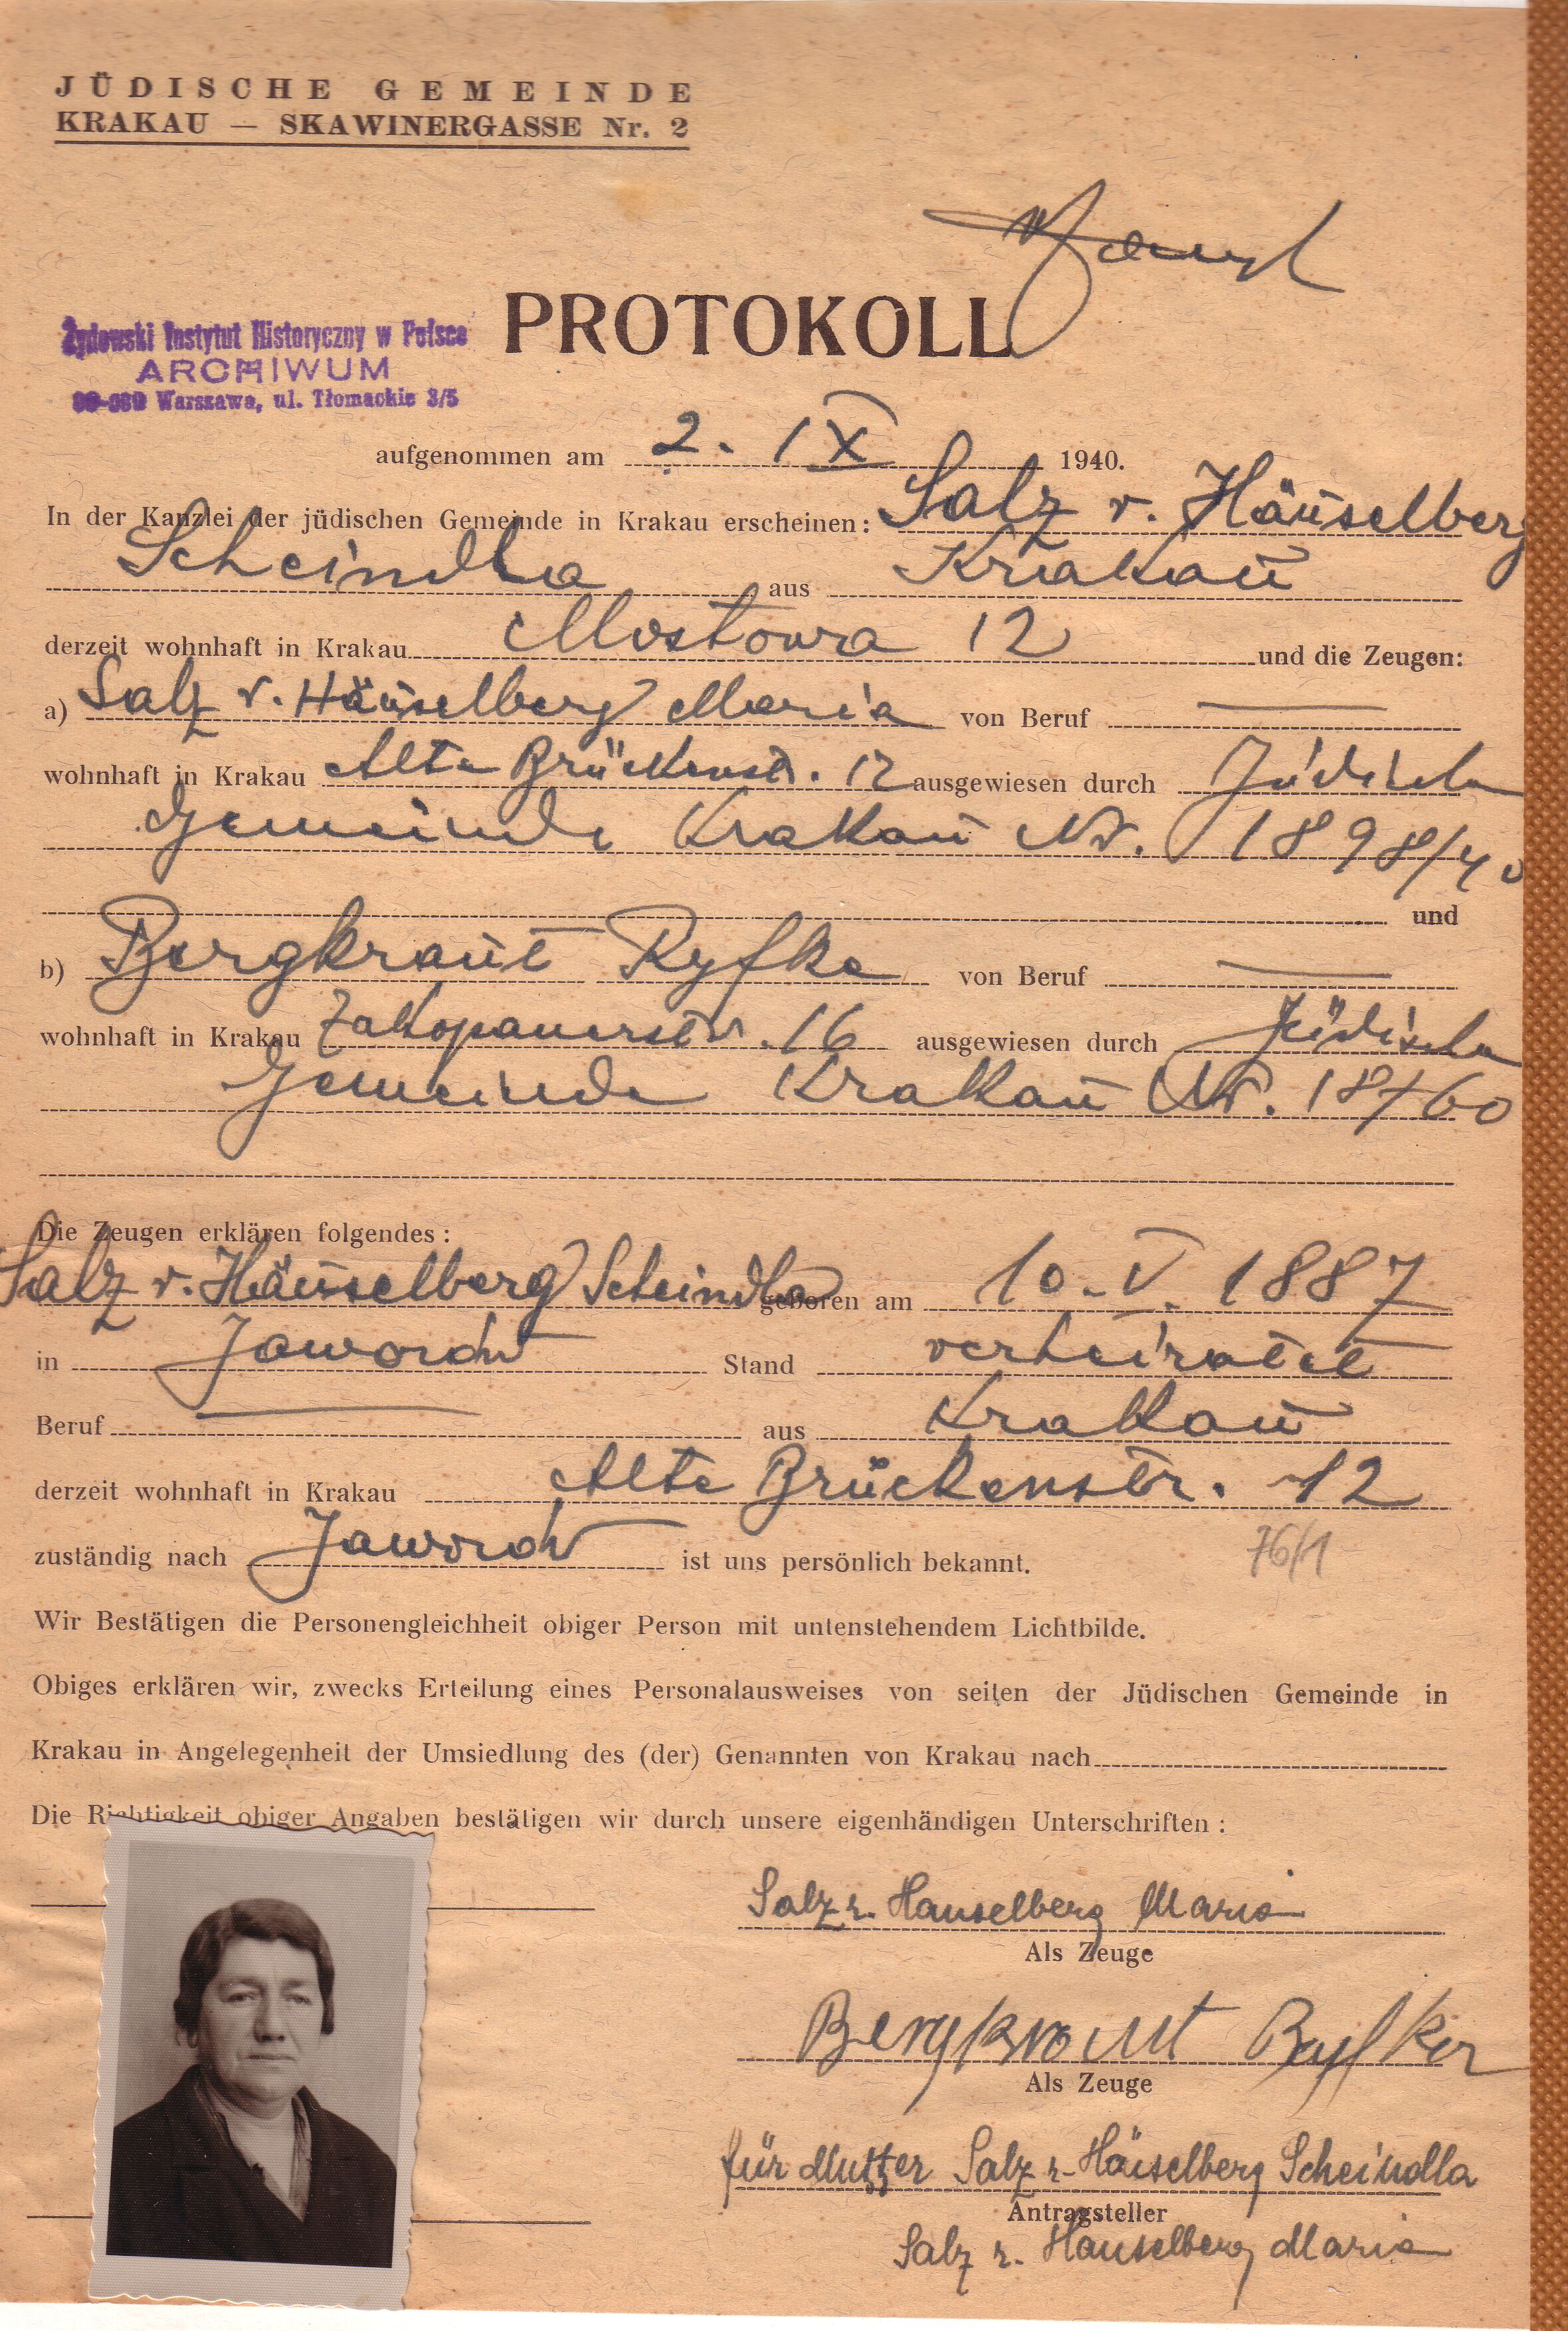 JÜDISCHE GEMEINDE
KRAKAU — SKAWINERGASSE Nr. 2
PROTOKOLL
Żydowski Instytut Historyczny w Polsce
ARCHIWUM
00-090 Warszawa, ul. Tłomackie 3/5
aufgenommen am 2. IX 1940.
In der Kanzlei der jüdischen Gemeinde in Krakau erscheinen: Salz r. Häuselberg
Scheindla aus Krakau
derzeit wohnhaft in Krakau Mostowa 12 und die Zeugen:
a) Salz r. Häuselberg Maria von Beruf —
wohnhaft in Krakau Alte Brückenstr. 12 ausgewiesen durch Jüdische
Gemeinde Krakau Nr. 1898/40
und
b) Bergkraut Ryfka von Beruf —
wohnhaft in Krakau Zakopanerstr. 16 ausgewiesen durch Jüdische
Gemeinde Krakau Nr. 18760
Die Zeugen erklären folgendes:
Salz r. Häuselberg Scheindla geboren am 10. V. 1887
in Jaworów Stand verheiratet
Beruf — aus Krakau
derzeit wohnhaft in Krakau Alte Brückenstr. 12
zuständig nach Jaworów ist uns persönlich bekannt.
76/1
Wir Bestätigen die Personengleichheit obiger Person mit untenstehendem Lichtbilde.
Obiges erklären wir, zwecks Erteilung eines Personalausweises von seiten der Jüdischen Gemeinde in
Krakau in Angelegenheit der Umsiedlung des (der) Genannten von Krakau nach
Die Richtigkeit obiger Angaben bestätigen wir durch unsere eigenhändigen Unterschriften:
Salz r. Hauselberg Maria
Als Zeuge
Bergkraut Ryfka
Als Zeuge
für Mutter Salz r. Häuselberg Scheindla
Antragsteller
Salz r. Hauselberg Maria